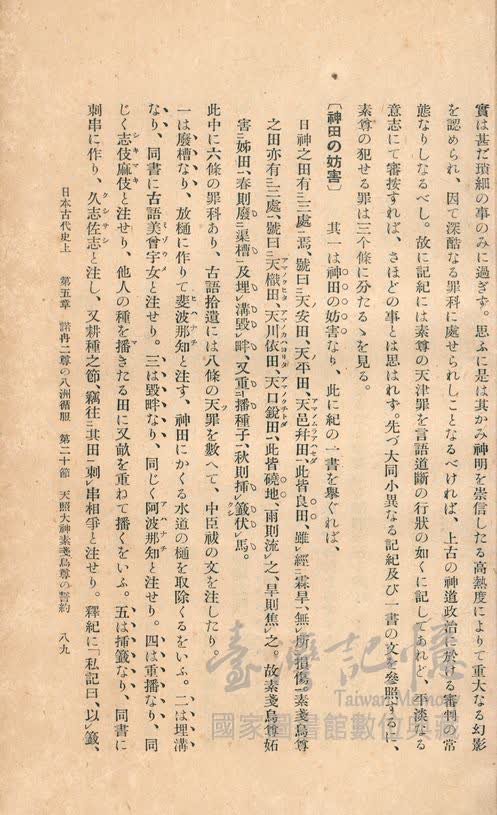 實は甚だ瑣細の事のみに過ぎず。思ふに是は其かみ神明を崇信したる高熱度によりて重大なる幻影
を認められ、因て深酷なる罪科に處せられしことなるべければ、上古の神道政治に於ける審判の常
態なりしなるべし。故に記紀には素尊の天津罪を言語道斷の行狀の如くに記してあれど、平淡なる
意志にて審按すれば、さほどの事とは思はれず。先づ大同小異なる記紀及び一書の文を參照するに、
素尊の犯せる罪は三个條に分たるゝを見る。
〔神田の妨害〕 其一は神田の妨害なり、此に紀の一書を擧ぐれば、
日神之田有二三處一焉、號曰二天安田、天平田、天邑幷田一、此皆良田、雖レ經二霖旱一、無レ所二損傷一。素戔烏尊
之田亦有二三處一、號曰二天樴田、天川依田、天口銳田一、此皆磽地、雨則流レ之、旱則焦レ之。故素戔烏尊妬
害二姉田一、春則廢二渠槽一、及埋レ溝毀レ畔、又重二播種子一、秋則挿レ籤伏レ馬。
此中に六條の罪科あり、古語拾遺には八條の天罪を數へて、中臣祓の文を注したり。
一は廢槽なり、放樋に作りて斐波那知と注す、神田にかくる水道の樋を取除くるをいふ。二は埋溝
なり、同書に古語美曾宇女と注せり。三は毀畔なり、同じく阿波那知と注せり。四は重播なり、同
じく志伎麻伎と注せり、他人の種を播きたる田に又畝を重ねて播くをいふ。五は挿籤なり、同書に
刺串に作り、久志佐志と注し、又耕種之節、竊往二其田一刺レ串相爭と注せり。釋紀に「私記曰、以レ籤、
日本古代史上 第五章 諾冉二尊の八洲循服 第二十節 天照大神素戔烏尊の誓約 八九
臺灣記憶
Taiwan Memory
國家圖書館數位典藏